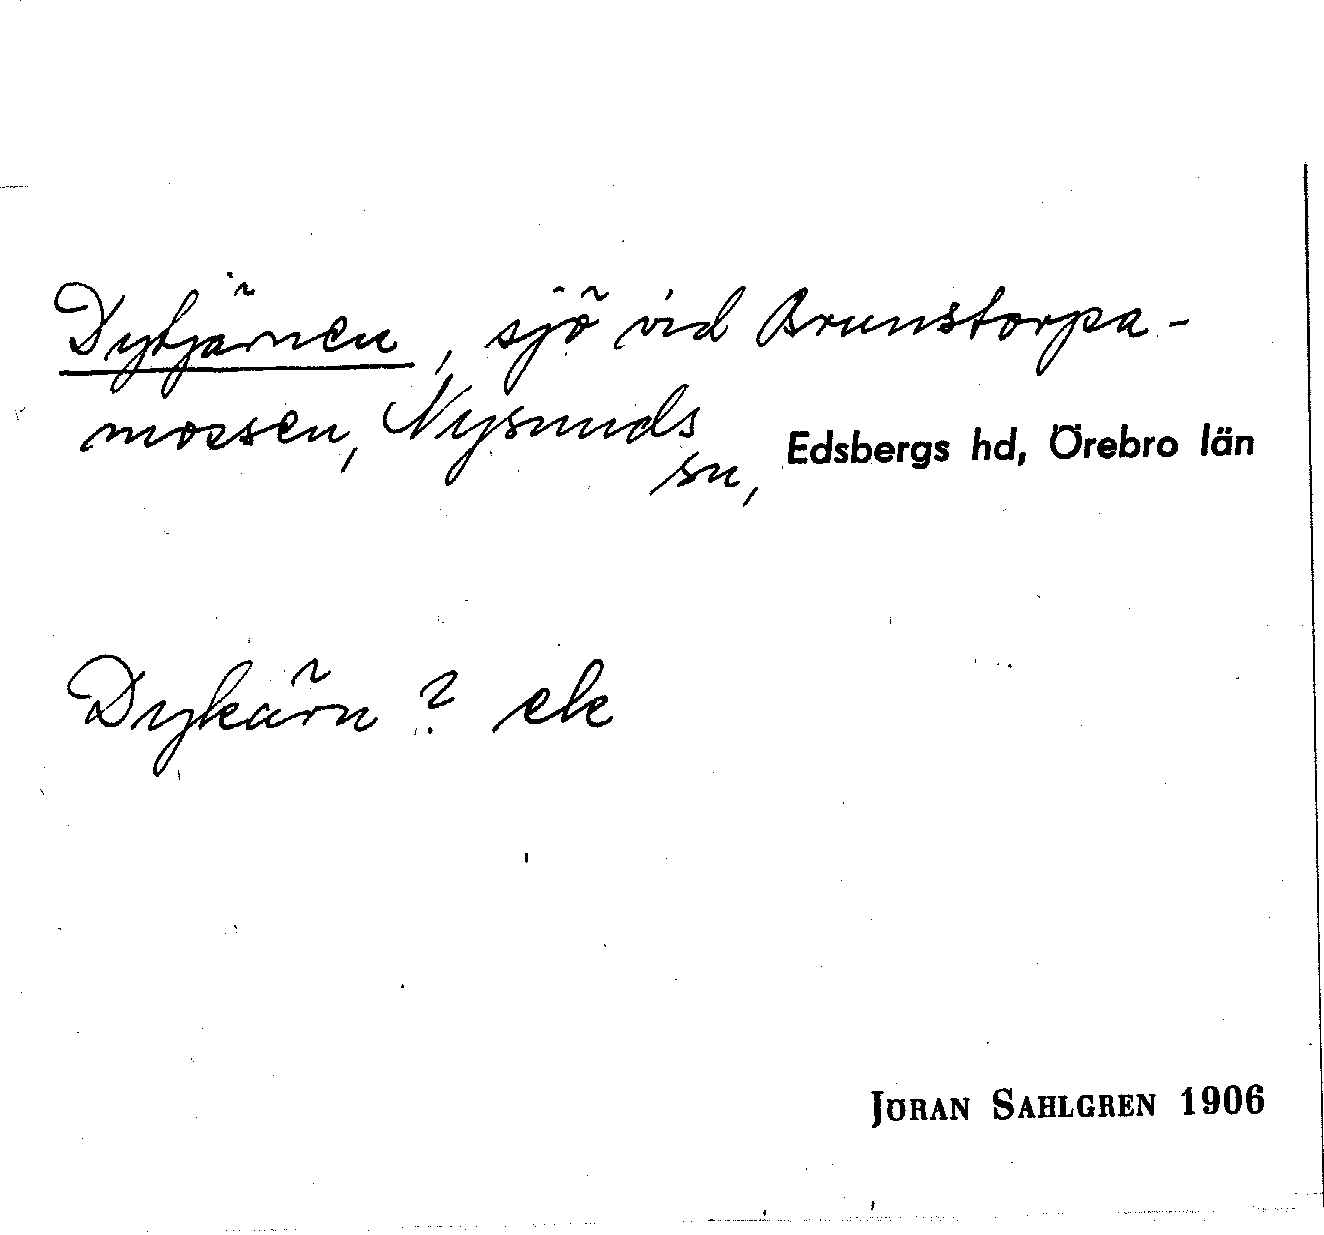 Dytjärnen, sjö vid Brunstorpa-
mossen, Nysunds
sn, Edsbergs hd, Örebro län
Dykärn? ek
JÖRAN SAHLGREN 1906